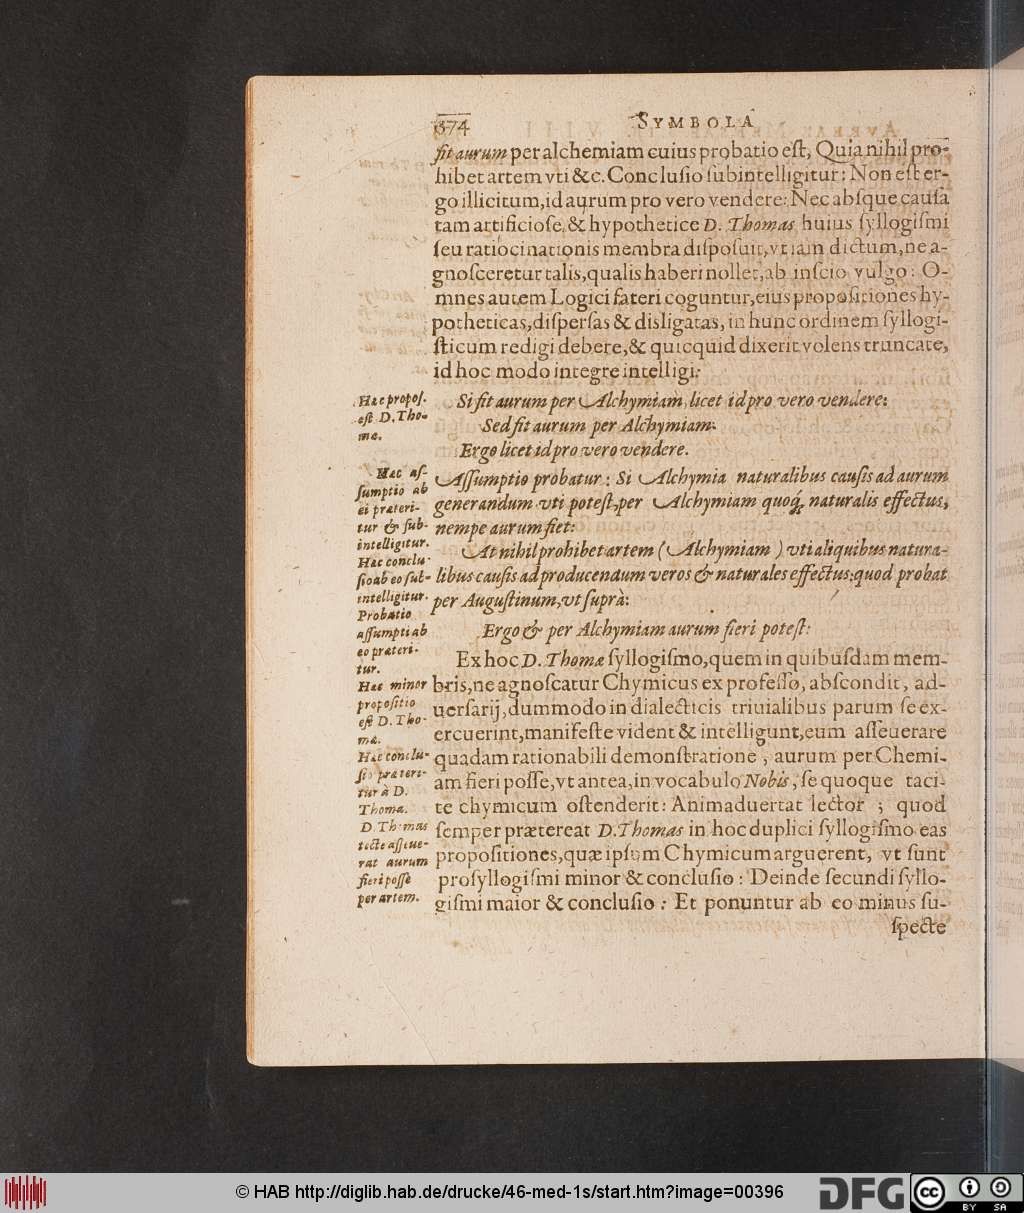 374
SYMBOLA
fit aurum per alchemiam cuius probatio est, Quia nihil pro-
hibet artem vti &c. Conclusio subintelligitur: Non est er-
go illicitum, id aurum pro vero vendere: Nec absque causa
tam artificiose, & hypothetice D. Thomas huius syllogismi
seu ratiocinationis membra disposuit, vt iam dictum, ne a-
gnosceretur talis, qualis haberi nollet, ab inscio vulgo: O-
mnes autem Logici fateri coguntur, eius propositiones hy-
potheticas, dispersas & disligatas, in hunc ordinem syllogi-
sticum redigi debere, & quicquid dixerit volens truncate,
id hoc modo integre intelligi:
Si fit aurum per Alchymiam, licet id pro vero vendere:
Sed fit aurum per Alchymiam:
Ergo licet id pro vero vendere.
Assumptio probatur: Si Alchymia naturalibus causis ad aurum
generandum vti potest, per Alchymiam quoq́, naturalis effectus,
nempe aurum fiet:
At nihil prohibet artem (Alchymiam) vti aliquibus natura-
libus causis ad producendum veros & naturales effectus: quod probat
per Augustinum, vt suprà:
Ergo & per Alchymiam aurum fieri potest:
Ex hoc D. Thomæ syllogismo, quem in quibusdam mem-
bris, ne agnoscatur Chymicus ex professo, abscondit, ad-
uersarij, dummodo in dialecticis triuialibus parum se ex-
ercuerint, manifeste vident & intelligunt, eum asseuerare
quadam rationabili demonstratione, aurum per Chemi-
am fieri posse, vt antea, in vocabulo Nobis, se quoque taci-
te chymicum ostenderit: Animaduertat lector ; quod
semper prætereat D. Thomas in hoc duplici syllogismo eas
propositiones, quæ ipsum Chymicum arguerent, vt sunt
prosyllogismi minor & conclusio: Deinde secundi syllo-
gismi maior & conclusio: Et ponuntur ab eo minus su-
specte
Hæc propos.
est D. Tho-
mæ.
Hæc as-
sumptio ab
ei præteri-
tur & sub-
intelligitur.
Hæc conclu-
sio ab eo sub-
intelligitur.
Probatio
assumpti ab
eo præteri-
tur.
Hæc minor
propositio
est D. Tho-
mæ.
Hæc conclu-
sio præteri-
tur à D.
Thoma.
D. Thomas
tecte asseue-
rat aurum
fieri posse
per artem.
© HAB http://diglib.hab.de/drucke/46-med-1s/start.htm?image=00396
DFG
cc BY SA